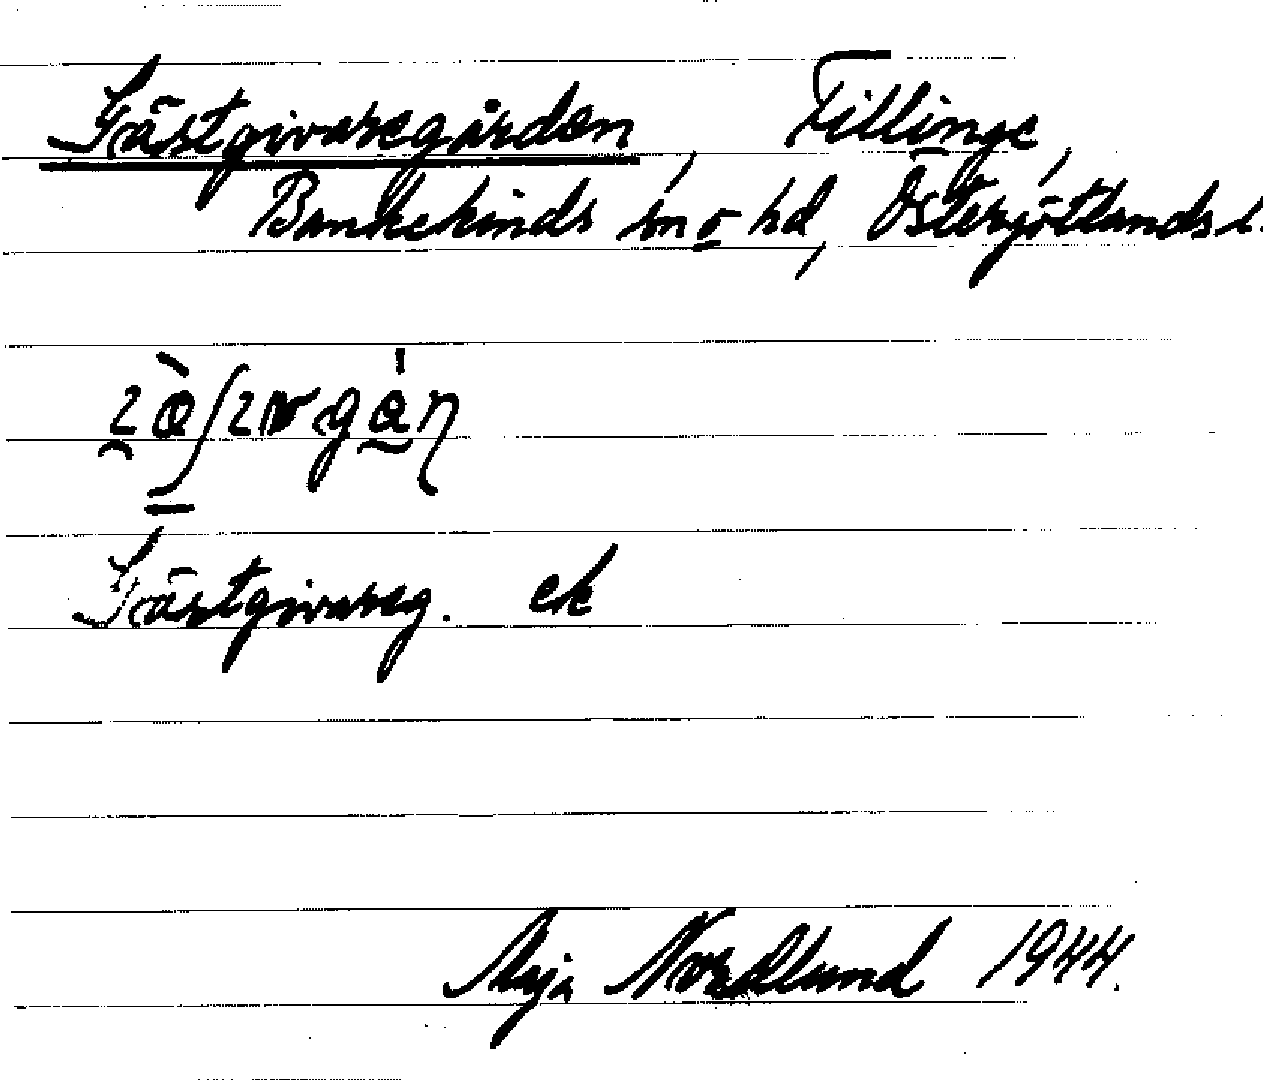 Gästgivaregården, Tillinge,
Bankekinds sn o hd, Östergötlands l.
Gästgivareg. ek
Maja Nordlund 1944.